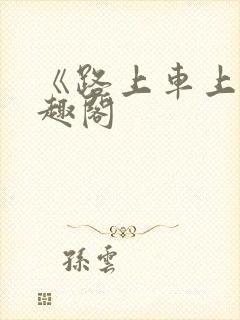 《路上車上
趣閣
孫雲